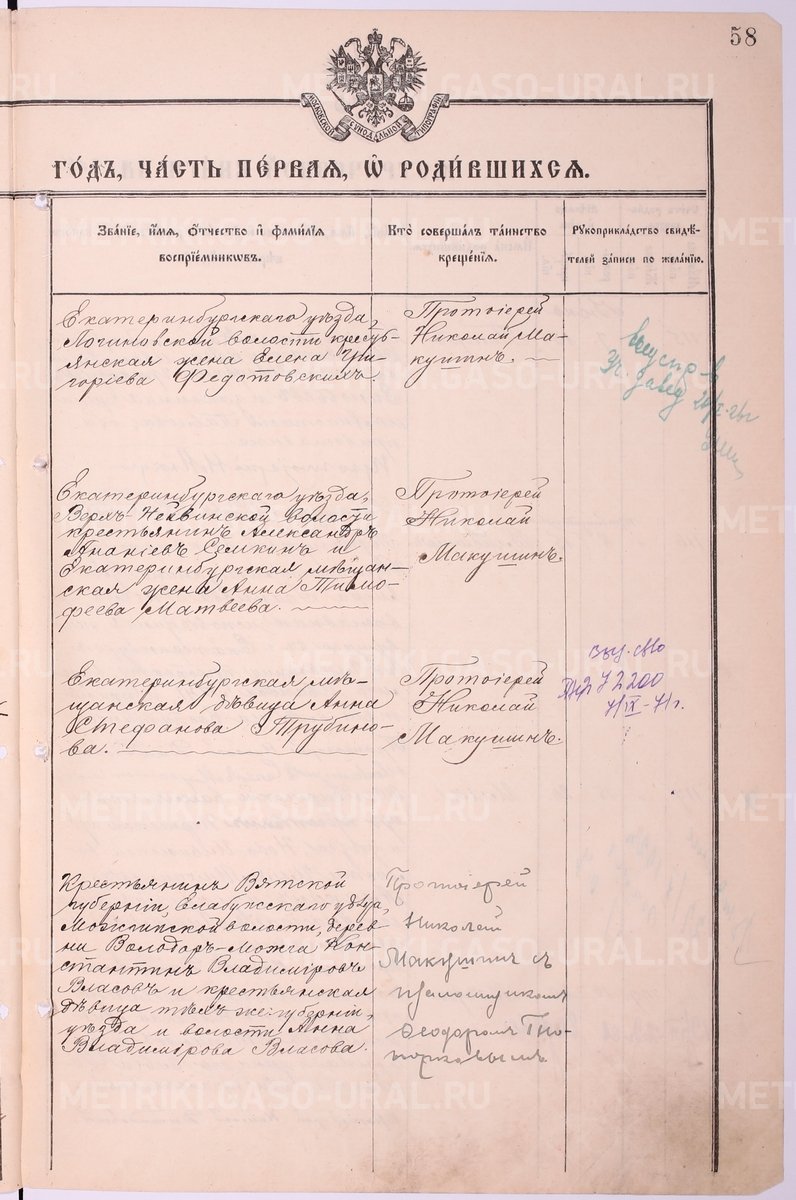 58
МОСКОВСКОЙ СѴНОДАЛЬНОЙ ТИПОГРАФІИ
ГО́ДЪ, ЧА́СТЬ ПЕ́РВАЯ, Ѡ҆ РОДИ́ВШИХСѦ.
Зва́нїе, и҆́мя, ѻ҆́тчество и҆ фами́лїя
воспрїе́мникѡвъ.
Кто̀ соверша́лъ та́инство
креще́нїя.
Рꙋкоприкла́дство свидѣ́-
телей за́писи по жела́нїю.
Екатеринбургскаго уѣзда,
Логиновской волости кресть-
янская жена Елена Гри-
горіева Федотовскихъ.
Протоіерей
Николай Ма-
кушинъ.
Екатеринбургскаго уѣзда,
Верхъ-Нейвинской волости
крестьянинъ Александръ
Ананіевъ Семкинъ и
Екатеринбургская мѣщан-
ская жена Анна Тимо-
феева Матвеева.
Протоіерей
Николай
Макушинъ.
Екатеринбургская мѣ-
щанская дѣвица Анна
Стефанова Трубино-
ва.
Протоіерей
Николай
Макушинъ.
72200
7/IX-71г.
Крестьянинъ Вятской
губерніи, Елабужскаго уѣзда,
Можгинской волости, дерев-
ни Володоръ-Можга Кон-
стантинъ Владиміровъ
Власовъ и крестьянская
дѣвица тѣхъ же: губерніи,
уѣзда и волости Анна
Владимірова Власова.
Протоіерей
Николай
Макушинъ съ
псаломщикомъ
Ѳеодоромъ